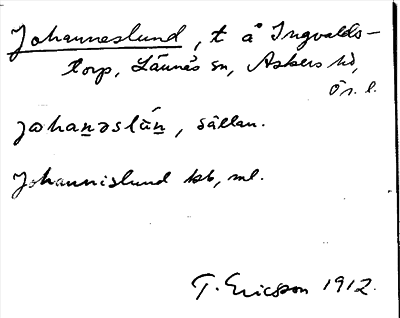 Johanneslund, t å Ingvalds-
torp, Lännäs sn, Askers hd,
Ör. l.
johanəslún, sällan.
Johannislund kb, ml.
T. Ericsson 1912.